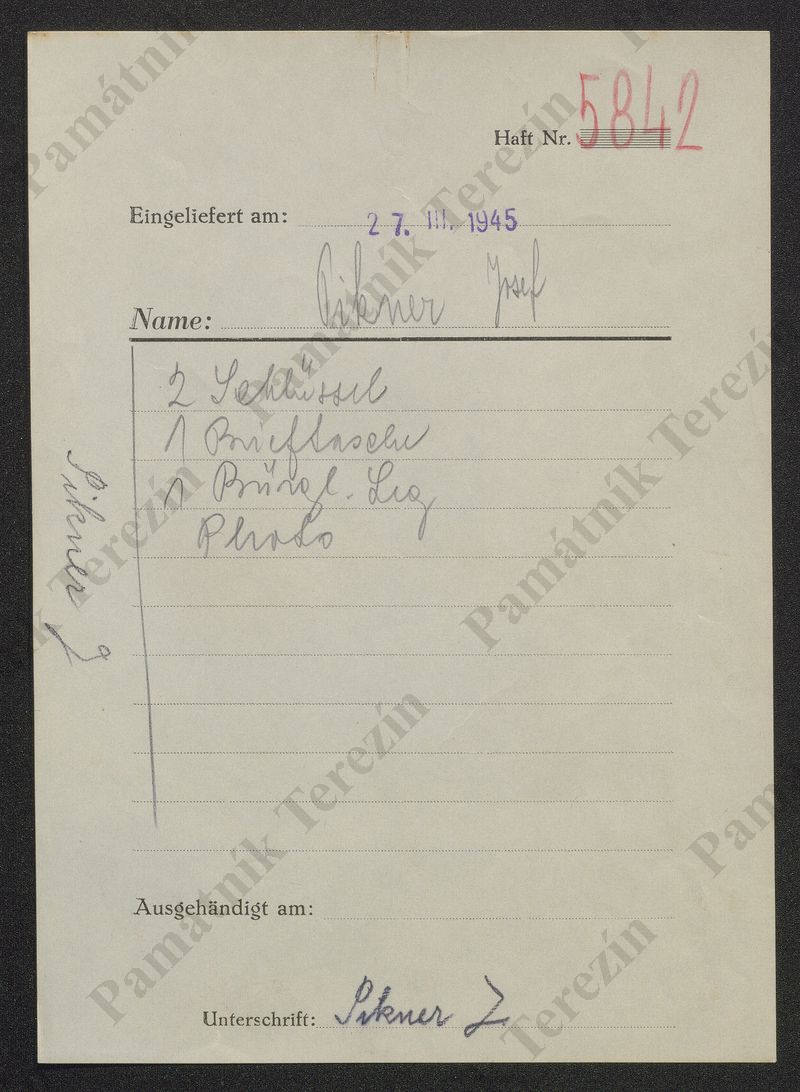 Haft Nr. 5842
Eingeliefert am: 27. III. 1945
Name: Pikner Josef
2 Schlüssel
1 Brieftasche
1 Bürgl. Leg
Photo
Pikner J
Ausgehändigt am:
Unterschrift: Pikner J
Památník Terezín